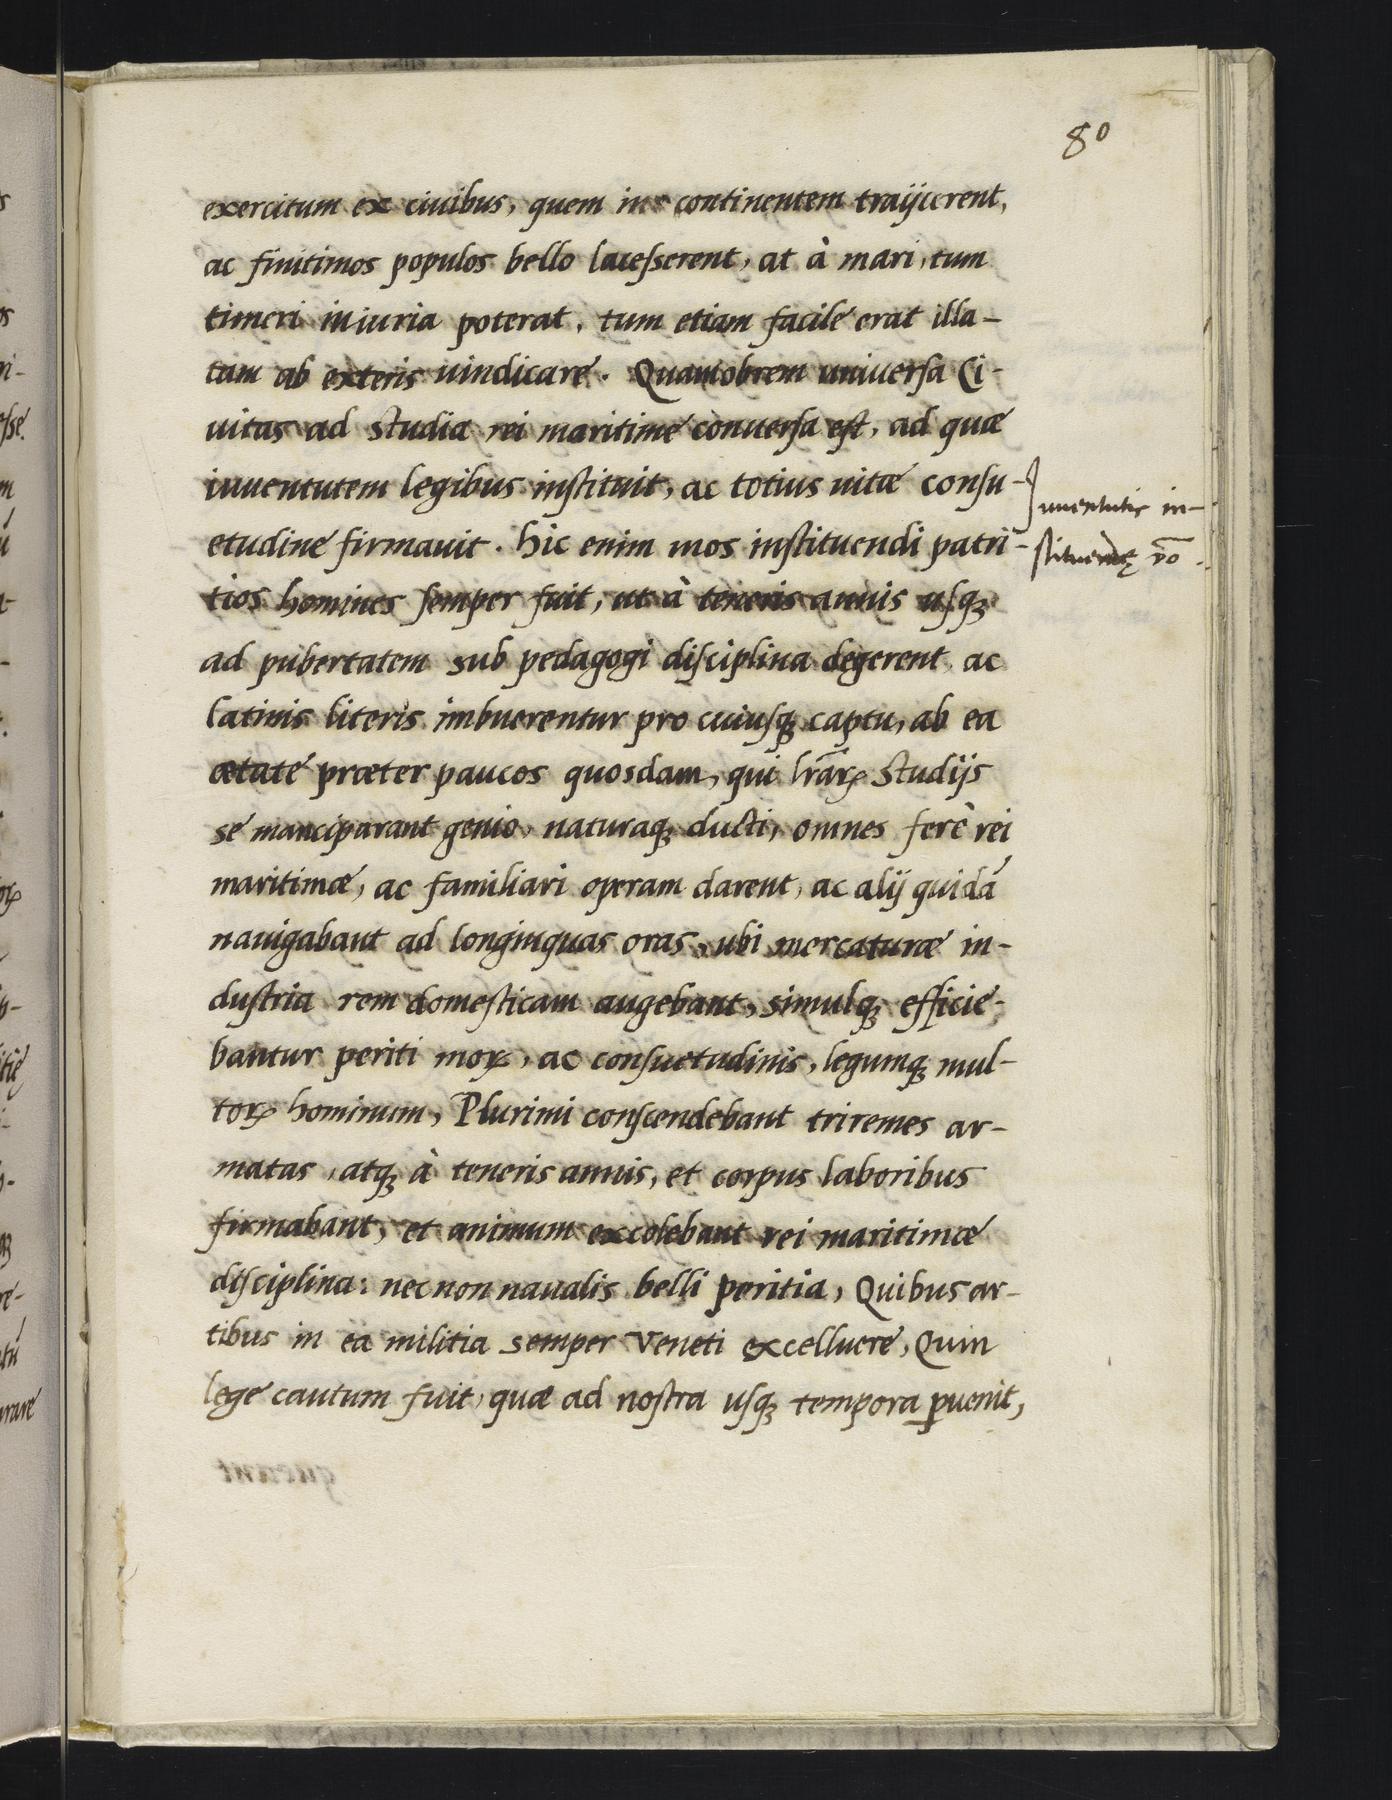 80
exercitum ex ciuibus, quem in continentem traijcerent,
ac finitimos populos bello lacesserent, at à mari, tum
timeri iniuria poterat, tum etiam facile erat illa-
tam ab exteris uindicare. Quamobrem uniuersa Ci-
uitas ad studia rei maritime conuersa est, ad quæ
iuuentutem legibus instituit, ac totius uitæ consu-
etudine firmauit. hic enim mos instituendi patri-
Iuuentutis in-
stituendę rō.
tios homines semper fuit, ut à teneris annis usq;
ad pubertatem sub pedagogi disciplina degerent, ac
latinis literis imbuerentur pro cuiusq; captu, ab ea
ætate præter paucos quosdam, qui lr̄arꝝ studijs
se manciparant genio, naturaq; ducti, omnes ferè rei
maritimæ, ac familiari operam darent, ac alij quidā
nauigabant ad longinquas oras, ubi mercaturæ in-
dustria rem domesticam augebant, simulq; efficie-
bantur periti morꝝ, ac consuetudinis, legumq; mul-
torꝝ hominum, Plurimi conscendebant triremes ar-
matas, atq; à teneris annis, et corpus laboribus
firmabant, et animum excolebant rei maritimæ
disciplina: nec non naualis belli peritia, Quibus ar-
tibus in ea militia semper Veneti excelluere, Quin
lege cautum fuit, quæ ad nostra usq; tempora ꝑuenit,